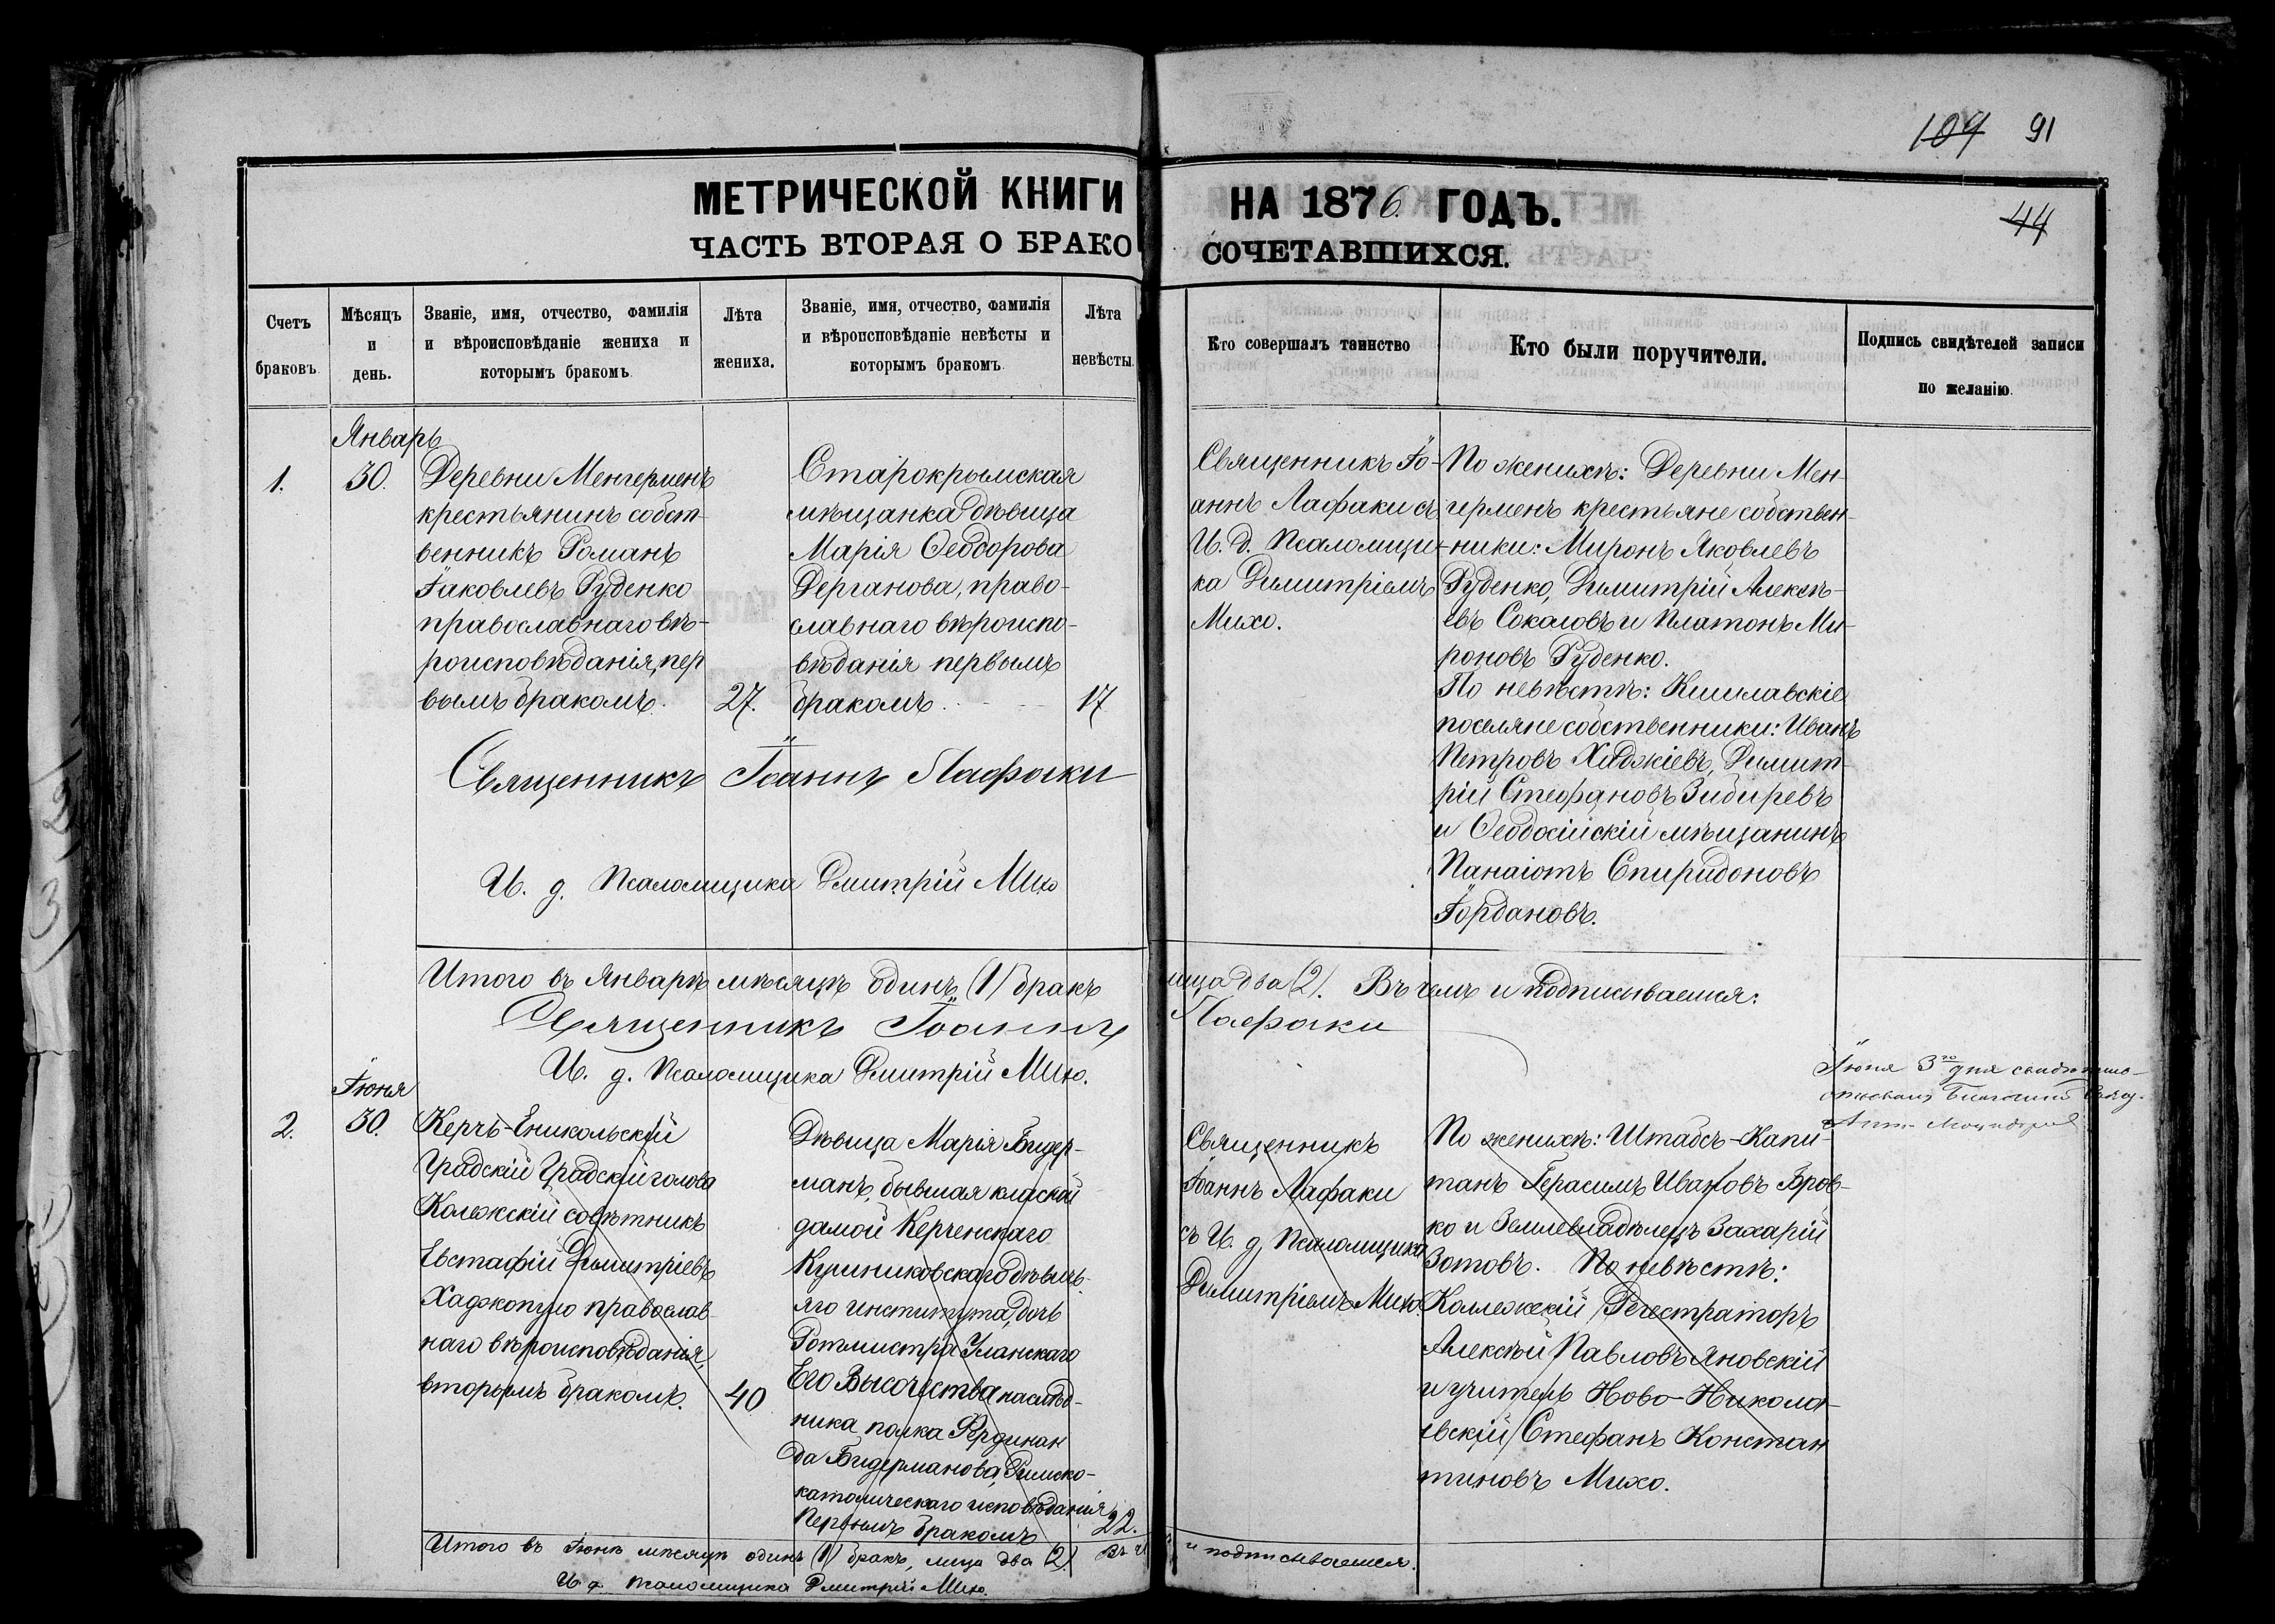 109 91
МЕТРИЧЕСКОЙ КНИГИ НА 1876 ГОДЪ.
44
ЧАСТЬ ВТОРАЯ О БРАКОСОЧЕТАВШИХСЯ.
Счетъ
браковъ.
Мѣсяцъ
и
день.
Званіе, имя, отчество, фамилія
и вѣроисповѣданіе жениха и
которымъ бракомъ.
Лѣта
жениха.
Званіе, имя, отчество, фамилія
и вѣроисповѣданіе невѣсты и
которымъ бракомъ.
Лѣта
невѣсты.
Кто совершалъ таинство
Кто были поручители.
Подпись свидѣтелей записи
по желанію.
1.
Январь
30.
Деревни Менгерменъ
крестьянинъ собст-
венникъ Романъ
Іаковлевъ Руденко
православнаго вѣ-
роисповѣданія, пер
вымъ бракомъ.
27.
Старокрымская
мѣщанка дѣвица
Марія Ѳеодорова
Дерганова, право-
славнаго вѣроиспо-
вѣданія первымъ
бракомъ.
17
Священникъ Іо-
аннъ Лафаки съ
И. д. Псаломщи-
ка Димитріемъ
Михо.
По женихѣ: Деревни Мен-
герменъ крестьяне собствен-
ники: Миронъ Яковлевъ
Руденко, Димитрій Алексѣ-
евъ Соколовъ и Платонъ Ми-
роновъ Руденко.
По невѣстѣ: Кишлавскіе
поселяне собственники: Иванъ
Петровъ Хаджіевъ, Димит-
рій Стефановъ Зибиревъ
и Ѳеодосійскій мѣщанинъ
Панаіотъ Спиридоновъ
Іордановъ.
Священникъ Іоаннъ Лафаки
И. д. Псаломщика Дмитрій Михо
Итого въ Январѣ мѣсяцѣ одинъ (1) бракъ лица два (2). Въ чемъ и подписываемся:
Священникъ Іоаннъ Лафаки
И. д. Псаломщика Дмитрій Михо.
2.
Іюня
30.
Керчъ-Еникольскій
Градскій Градскій голова
Колежскій совѣтникъ
Евстафій Димитріевъ
Хаджопуло православ-
наго вѣроисповѣданія,
вторымъ бракомъ.
40
Дѣвица Марія Бидер-
манъ, бывшая класной
дамой Керченскаго
Кушниковскаго дѣвичь-
яго института, дочь
Ротмистра Уланскаго
Его Высочества наслѣд-
ника полка Фердинан
да Бидерманова, Римско-
католическаго исповѣданія
Первымъ бракомъ
22.
Священникъ
Іоаннъ Лафаки
съ И. д. Псаломщика
Димитріемъ Михо.
По женихѣ: Штабсъ-Капи-
танъ Герасимъ Ивановъ Бров-
ко и Землевладѣлецъ Захарій
Зотовъ. По невѣстѣ:
Коллежскій Регестраторъ
Алексѣй Павловъ Яновскій
и учитель Ново-Никола-
евскій Стефанъ Констан
тиновъ Михо.
Іюня 3го дня свидѣтель-
Итого въ Іюнѣ мѣсяцѣ одинъ (1) бракъ, лица два (2). и подписываемся.
И. д. Псаломщика Дмитрій Михо.